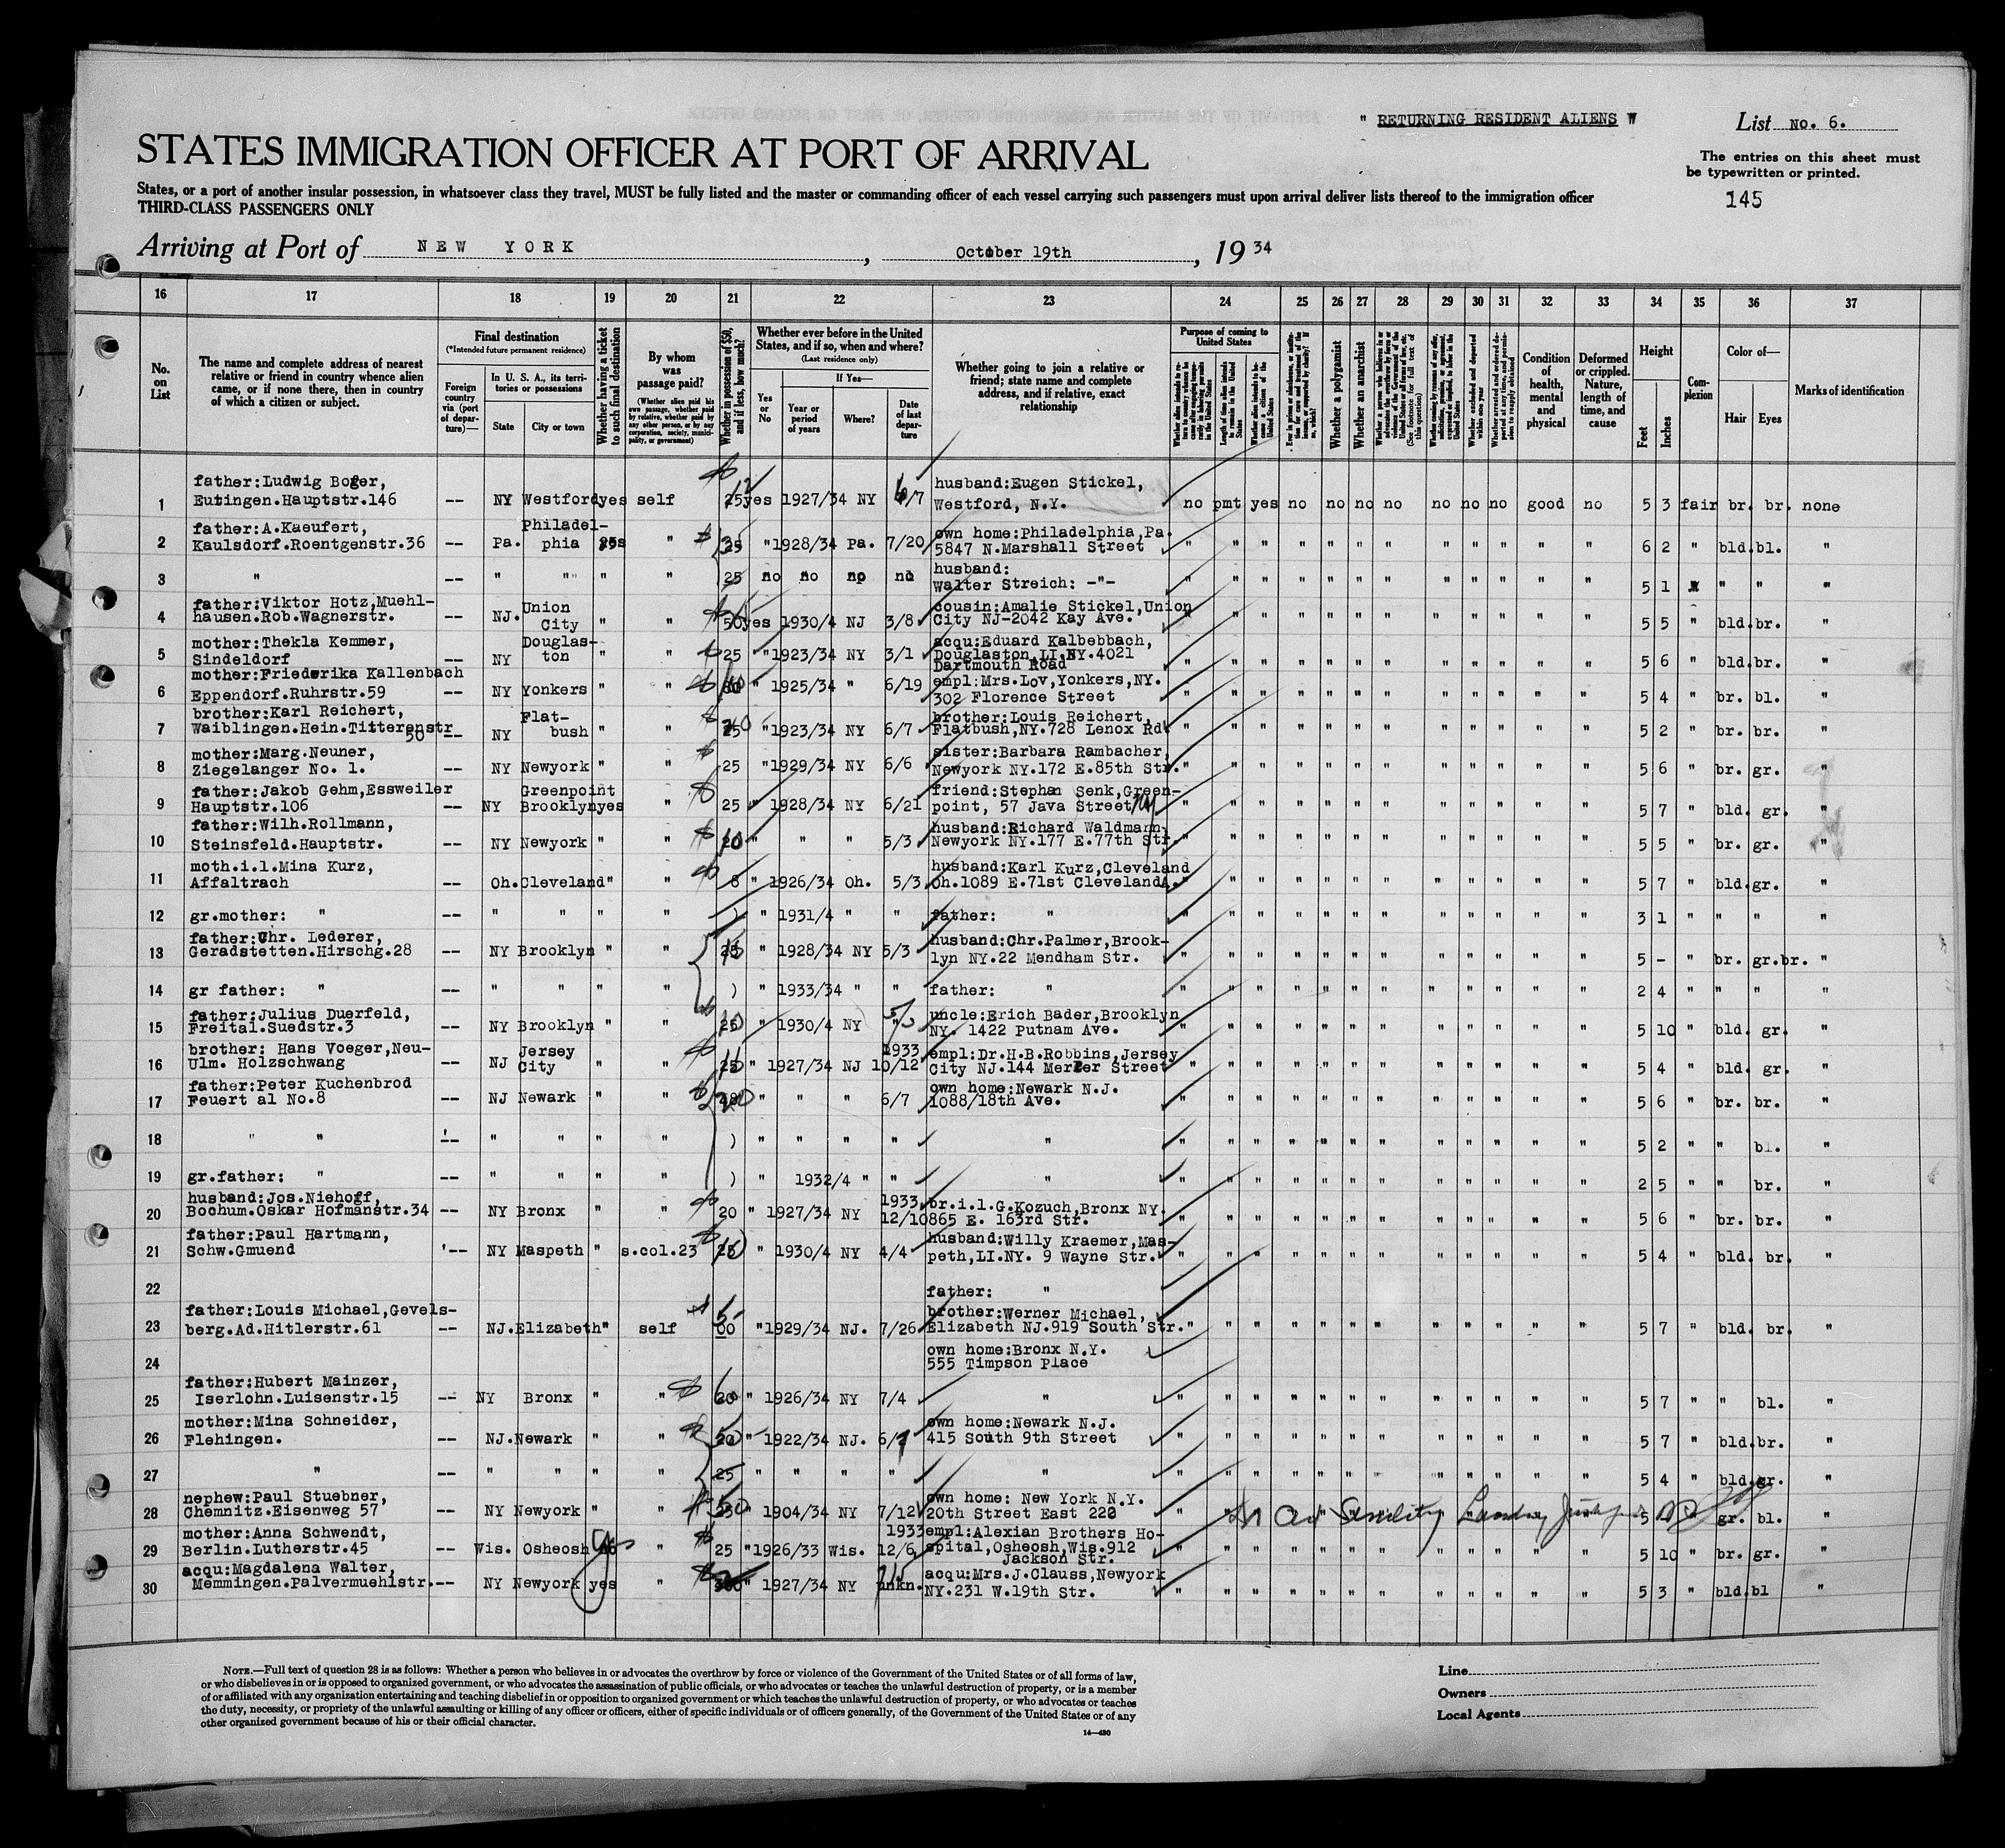 " RETURNING RESIDENT ALIENS "
List No. 6.
STATES IMMIGRATION OFFICER AT PORT OF ARRIVAL
The entries on this sheet must
be typewritten or printed.
States, or a port of another insular possession, in whatsoever class they travel, MUST be fully listed and the master or commanding officer of each vessel carrying such passengers must upon arrival deliver lists thereof to the immigration officer
THIRD-CLASS PASSENGERS ONLY
145
Arriving at Port of NEW YORK, October 19th, 1934
16 17 18 19 20 21 22 23 24 25 26 27 28 29 30 31 32 33 34 35 36 37
No. on List
The name and complete address of nearest relative or friend in country whence alien came, or if none there, then in country of which a citizen or subject.
Final destination
(*Intended future permanent residence)
Foreign country via (port of departure)—
In U. S. A., its territories or possessions
State City or town
Whether having a ticket to such final destination
By whom was passage paid?
(Whether alien paid his own passage, whether paid by relative, whether paid by any other person, or by any corporation, society, municipality, or government)
Whether in possession of $50, and if less, how much?
Whether ever before in the United States, and if so, when and where?
(Last residence only)
If Yes—
Yes or No Year or period of years Where? Date of last departure
Whether going to join a relative or friend; state name and complete address, and if relative, exact relationship
Purpose of coming to United States
Length of time alien intends to remain in the United States
Whether alien intends to become a citizen of the United States
Whether a polygamist
Whether an anarchist
Condition of health, mental and physical
Deformed or crippled. Nature, length of time, and cause
Height
Feet Inches
Complexion
Color of—
Hair Eyes
Marks of identification
father:Ludwig Boger, husband:Eugen Stickel,
1 Eutingen.Hauptstr.146 -- NY Westford yes self 25 yes 1927/34 NY Westford, N.Y. no pmt yes no no no no no no no good no 5 3 fair br. br. none
father:A.Kaeufert, Philadel- own home:Philadelphia,Pa.
2 Kaulsdorf.Roentgenstr.36 -- Pa. phia " 25 " 1928/34 Pa. 7/20 5847 N.Marshall Street " " " " " " " " " " " " 6 2 " bld. bl. "
husband:
3 " -- " " " " 25 no no no no Walter Streich: -"- " " " " " " " " " " " " 5 1 " " "
father:Viktor Hotz,Muehl- Union cousin:Amalie Stickel,Union
4 hausen.Rob.Wagnerstr. -- NJ. City " " 50 yes 1930/4 NJ 3/8 City NJ-2042 Kay Ave. " " " " " " " " " " " " 5 5 " bld. br. "
mother:Thekla Kemmer, Douglas- acqu:Eduard Kalbebbach,
5 Sindeldorf -- NY ton " " 25 " 1923/34 NY 3/1 Douglaston,LI.NY.4021
Dartmouth Road " " " " " " " " " " " " 5 6 " bld. br. "
mother:Friederika Kallenbach empl:Mrs.Lov,Yonkers,NY.
6 Eppendorf.Ruhrstr.59 -- NY Yonkers " " " 1925/34 " 6/19 302 Florence Street " " " " " " " " " " " " 5 4 " br. bl. "
brother:Karl Reichert, Flat- brother:Louis Reichert,
7 Waiblingen.Hein.Titterenstr -- NY bush " " 25 " 1923/34 NY 6/7 Flatbush,NY.728 Lenox Rd. " " " " " " " " " " " " 5 2 " br. br. "
50
mother:Marg.Neuner, sister:Barbara Rambacher,
8 Ziegelanger No. 1. -- NY Newyork " " 25 " 1929/34 NY 6/6 Newyork NY.172 E.85th Str. " " " " " " " " " " " " 5 6 " br. gr. "
father:Jakob Gehm,Essweiler Greenpoint friend:Stephan Senk,Green-
9 Hauptstr.106 -- NY Brooklyn yes " 25 " 1928/34 NY 6/21 point, 57 Java Street, NY " " " " " " " " " " " " 5 7 " bld. gr. "
father:Wilh.Rollmann, husband:Richard Waldmann,
10 Steinsfeld.Hauptstr. -- NY Newyork " " 20 " " " 5/3 Newyork NY.177 E.77th Str. " " " " " " " " " " " " 5 5 " br. gr. "
moth.i.l.Mina Kurz, husband:Karl Kurz,Cleveland
11 Affaltrach -- Oh. Cleveland " " 8 " 1926/34 Oh. 5/3 Oh.1089 E.71st Cleveland " " " " " " " " " " " " 5 7 " bld. gr. "
12 gr.mother: " -- " " " " ) " 1931/4 " " father: " " " " " " " " " " " " " 3 1 " " " "
father:Chr. Lederer, husband:Chr.Palmer,Brook-
13 Geradstetten.Hirschg.28 -- NY Brooklyn " " 25 " 1928/34 NY 5/3 lyn NY.22 Mendham Str. " " " " " " " " " " " " 5 - " br. gr.br. "
14 gr father: " -- " " " " ) " 1933/34 " " father: " " " " " " " " " " " " " 2 4 " " " "
father:Julius Duerfeld, uncle:Erich Bader,Brooklyn
15 Freital.Suedstr.3 -- NY Brooklyn " " " 1930/4 NY 5/3 NY. 1422 Putnam Ave. " " " " " " " " " " " " 5 10 " bld. gr. "
brother: Hans Voeger,Neu- Jersey 1933 empl:Dr.H.B.Robbins,Jersey
16 Ulm. Holzschwang -- NJ City " " 25 " 1927/34 NJ 10/12 City NJ.144 Mercer Street " " " " " " " " " " " " 5 4 " bld. gr. "
father:Peter Kuchenbrod own home:Newark N.J.
17 Feuert al No.8 -- NJ Newark " " " " " 6/7 1088/18th Ave. " " " " " " " " " " " " 5 6 " br. br. "
18 " " -- " " " " ) " " " " " " " " " " " " " " " " " 5 2 " " bl. "
19 gr.father: " -- " " " " ) " 1932/4 " " " " " " " " " " " " " " " 2 5 " " br. "
husband:Jos.Niehoff, 1933 br.i.l.G.Kozuch,Bronx NY.
20 Bochum.Oskar Hofmanstr.34 -- NY Bronx " " 20 " 1927/34 NY 12/10 865 E. 163rd Str. " " " " " " " " " " " " 5 6 " br. br. "
father:Paul Hartmann, husband:Willy Kraemer,Mas-
21 Schw.Gmuend -- NY Maspeth " s.col.23 25 " 1930/4 NY 4/4 peth,LI.NY. 9 Wayne Str. " " " " " " " " " " " " 5 4 " bld. br. "
22 father: "
father:Louis Michael,Gevels- brother:Werner Michael,
23 berg.Ad.Hitlerstr.61 -- NJ. Elizabeth " self " 1929/34 NJ. 7/26 Elizabeth NJ.919 South Str. " " " " " " " " " " " " 5 7 " bld. br. "
own home:Bronx N.Y.
24 555 Timpson Place
father:Hubert Mainzer,
25 Iserlohn.Luisenstr.15 -- NY Bronx " " 20 " 1926/34 NY 7/4 " " " " " " " " " " " " " 5 7 " " bl. "
mother:Mina Schneider, own home:Newark N.J.
26 Flehingen. -- NJ. Newark " " 20 " 1922/34 NJ. 415 South 9th Street " " " " " " " " " " " " 5 7 " bld. br. "
27 " -- " " " " 25 " " " " " " " " " " " " " " " " " 5 4 " bld. gr. "
nephew:Paul Stuebner, own home: New York N.Y.
28 Chemnitz.Eisenweg 57 -- NY Newyork " " " 1904/34 NY 7/12 20th Street East 222 " Senility 5 gr. bl. "
mother:Anna Schwendt, 1933 empl:Alexian Brothers Ho-
29 Berlin.Lutherstr.45 -- Wis. Osheosh yes " 25 " 1926/33 Wis. 12/6 spital,Osheosh,Wis.912
Jackson Str. " " " " " " " " " " " " 5 10 " br. gr. "
acqu:Magdalena Walter, acqu:Mrs.J.Clauss,Newyork
30 Memmingen.Palvermuehlstr. -- NY Newyork yes " " 1927/34 NY unkn. NY.231 W.19th Str. " " " " " " " " " " " " 5 3 " bld. bl "
NOTE.—Full text of question 28 is as follows: Whether a person who believes in or advocates the overthrow by force or violence of the Government of the United States or of all forms of law,
or who disbelieves in or is opposed to organized government, or who advocates the assassination of public officials, or who advocates or teaches the unlawful destruction of property, or is a member
of or affiliated with any organization entertaining and teaching disbelief in or opposition to organized government or which teaches the unlawful destruction of property, or who advocates or teaches
the duty, necessity, or propriety of the unlawful assaulting or killing of any officer or officers, either of specific individuals or of officers generally, of the Government of the United States or of any
other organized government because of his or their official character.
14—430
Line
Owners
Local Agents